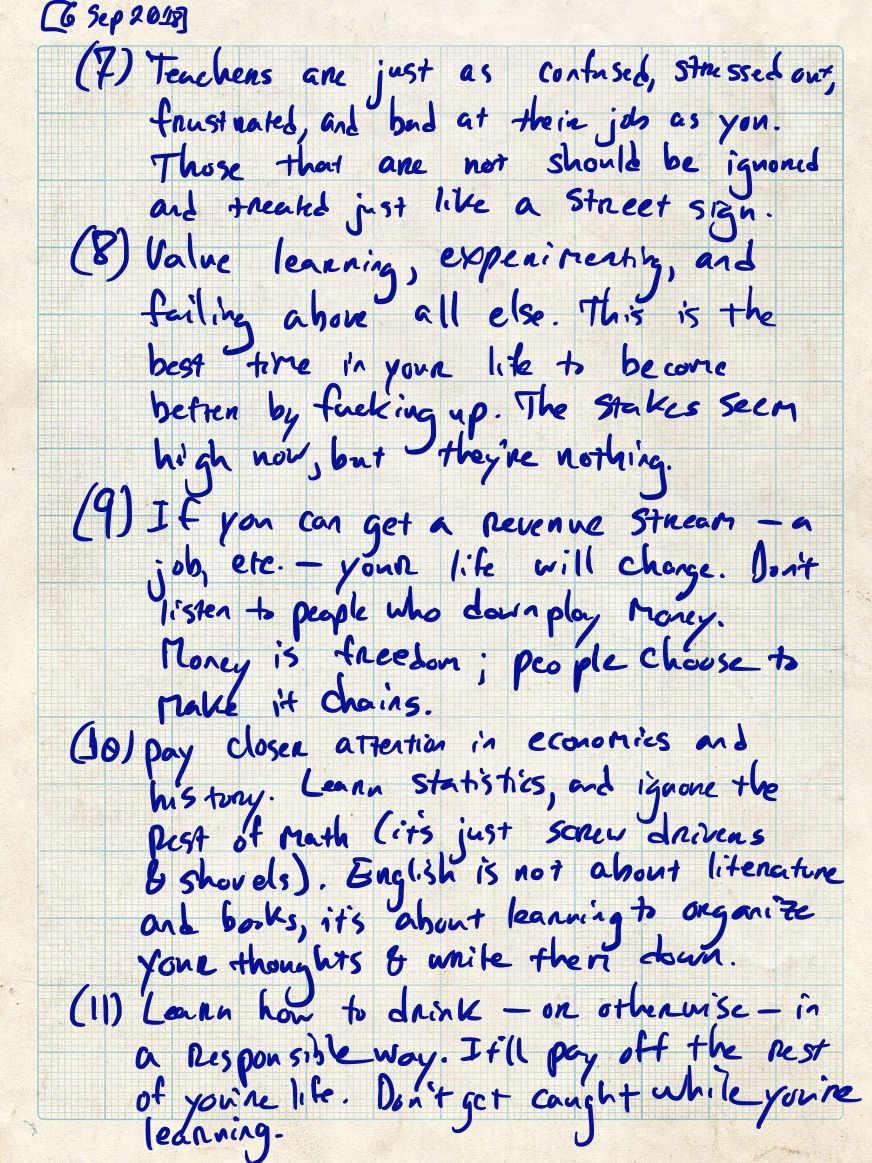 [6 Sep 2018]
(7) Teachers are just as confused, stressed out,
frustrated, and bad at their job as you.
Those that are not should be ignored
and treated just like a street sign.
(8) Value learning, experimenting, and
failing above all else. This is the
best time in your life to become
better by fucking up. The stakes seem
high now, but they're nothing.
(9) If you can get a revenue stream — a
job, etc. — your life will change. Don't
listen to people who downplay money.
Money is freedom; people choose to
make it chains.
(10) pay closer attention in economics and
history. Learn statistics, and ignore the
rest of math (it's just screw drivers
& shovels). English is not about literature
and books, it's about learning to organize
your thoughts & write them down.
(11) Learn how to drink — or otherwise — in
a responsible way. It'll pay off the rest
of you're life. Don't get caught while you're
learning.